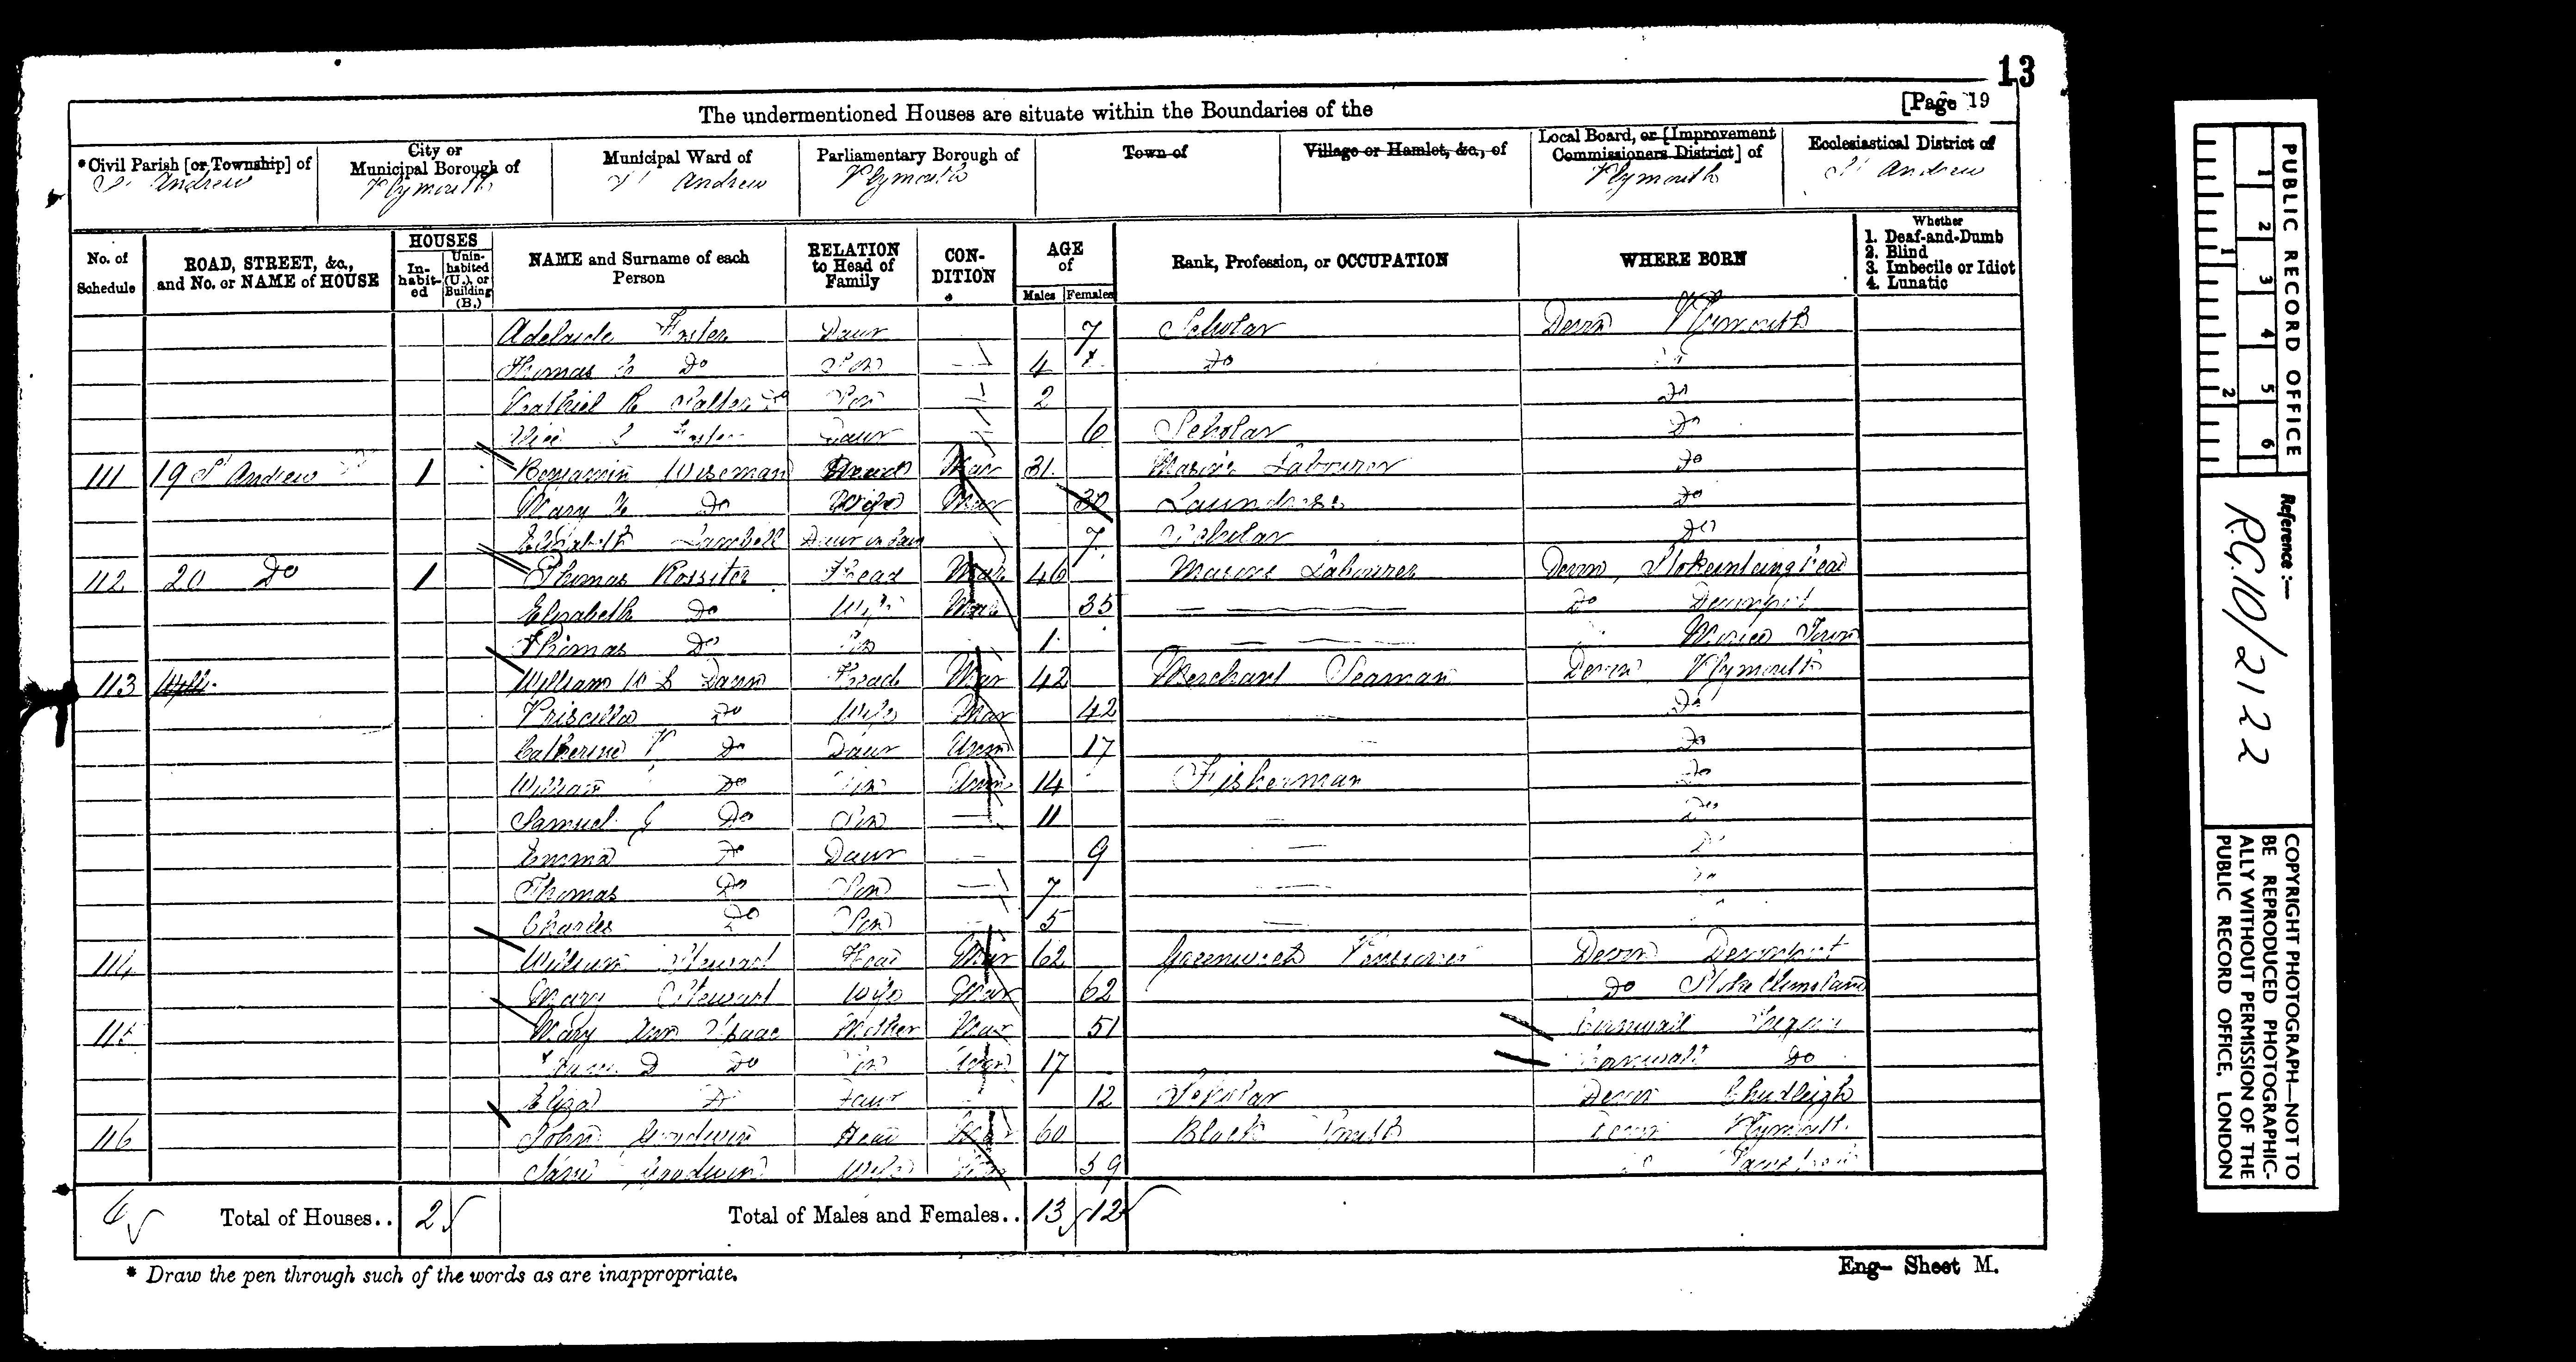 13
The undermentioned Houses are situate within the Boundaries of the
[Page 19
*Civil Parish [or Township] of
City or Municipal Borough of
Municipal Ward of
Parliamentary Borough of
Town of
Village or Hamlet, &c., of
Local Board, or [Improvement Commissioners District] of
Ecclesiastical District of
St Andrew Plymouth St Andrew Plymouth Plymouth St Andrew
No. of Schedule
ROAD, STREET, &c., and No. or NAME of HOUSE
HOUSES
In-habit-ed
Unin-habited (U.), or Building (B.)
NAME and Surname of each Person
RELATION to Head of Family
CON-DITION
AGE of
Males Females
Rank, Profession, or OCCUPATION
WHERE BORN
Whether
1. Deaf-and-Dumb
2. Blind
3. Imbecile or Idiot
4. Lunatic
Adelaide Foster Daur 7 Scholar Devon Plymouth
Thomas Do Son 4 Do Do
R Son 2 Do
Foster Daur 6 Scholar Do
111 19 St Andrew 1 Benjamin Wiseman Head Mar 31 Labourer Do
Mary Do Wife Mar 30 Laundress Do
Elizabeth Daur in Law 7 Scholar Do
112 20 Do 1 Thomas Rossiter Head Mar 46 Labourer Devon Stokeinteinghead
Elizabeth Do Wife Mar 35 Do Devonport
Thomas Do Son 1 Morice Town
113 William Head Mar 42 Merchant Seaman Devon Plymouth
Priscilla Do Wife Mar 42 Do
Catherine P Do Daur Unm 17 Do
William Do Son Unm 14 Fisherman Do
Samuel J Do Son 11 Do
Emma Do Daur 9 Do
Thomas Do Son 7 Do
Charles Do Son 5
114 William Stewart Head Mar 62 Greenwich Pensioner Devon Devonport
Mary Stewart Wife Mar 62 Do Stoke Climsland
115 Mary Ann Isaac Mother Mar 51 Cornwall
D Do Son Unm 17 Cornwall Do
Eliza Do Daur 12 Scholar Devon Chudleigh
116 John Goodwin Head Mar 60 Black Smith Devon Plymouth
Jane Goodwin Wife Mar 59 Do
6 Total of Houses.. 2
Total of Males and Females.. 13 12
* Draw the pen through such of the words as are inappropriate.
Eng- Sheet M.
PUBLIC RECORD OFFICE
1 2 3 4 5 6
1 2
Reference :-
R.G. 10/2122
COPYRIGHT PHOTOGRAPH—NOT TO
BE REPRODUCED PHOTOGRAPHIC-
ALLY WITHOUT PERMISSION OF THE
PUBLIC RECORD OFFICE, LONDON